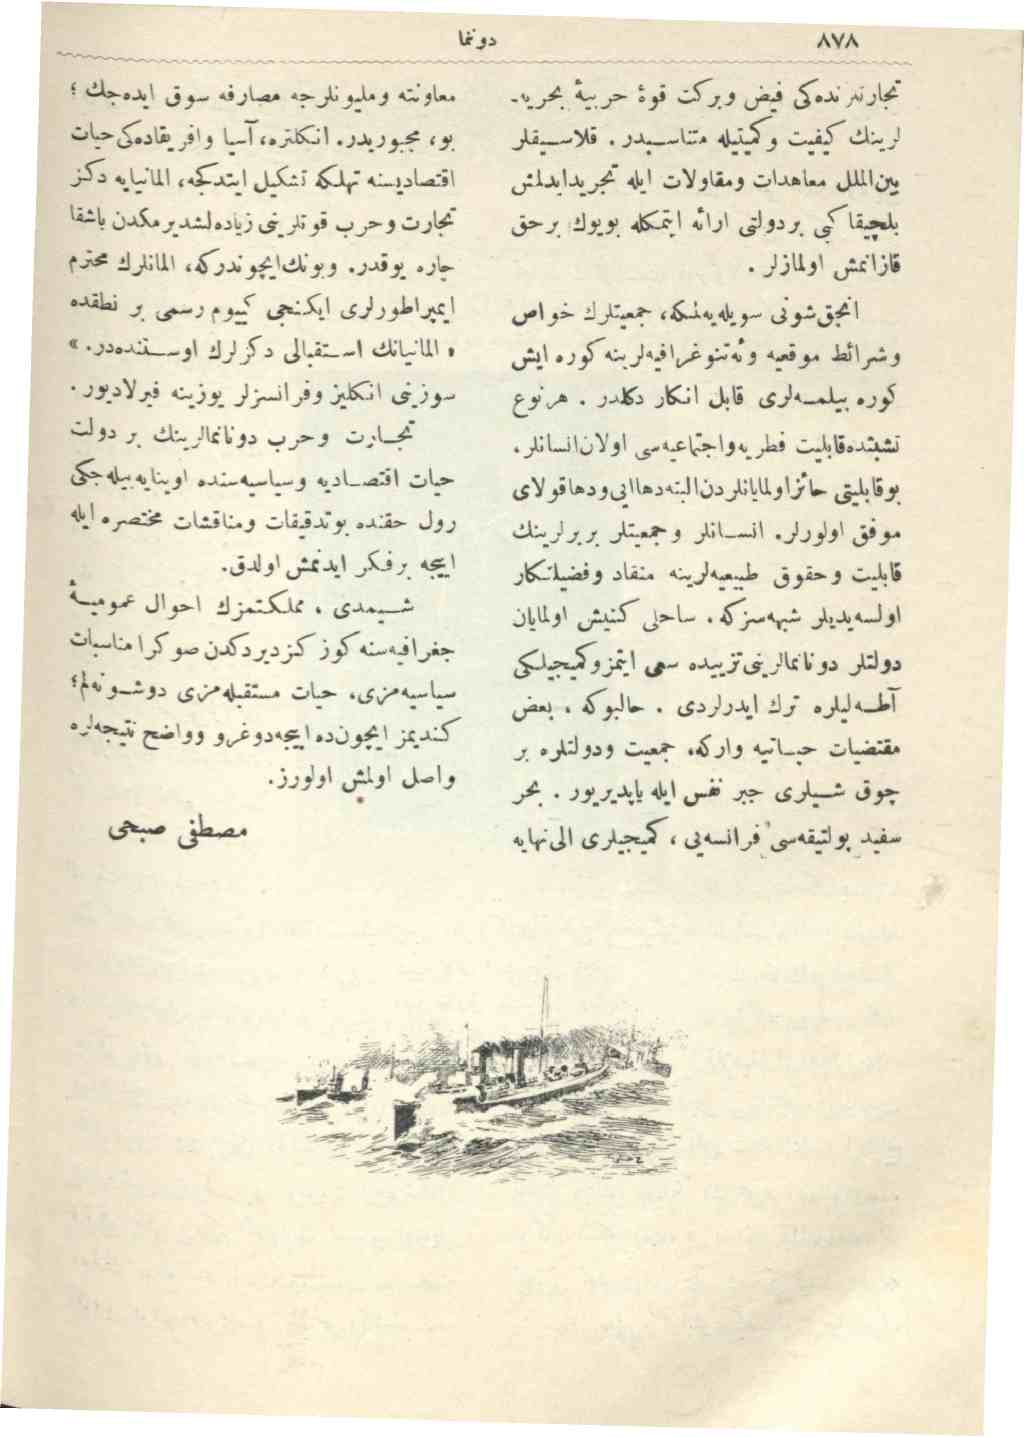 ٨٧٨
دونما
تجارتلرنده‌كی فيض وبركت قوۀ حربيۀ بحريه-
لرينك كيفيت وكميتيله متناسبدر . قلاسيقلر
بين‌الملل معاهدات ومقاولات ايله تجريدايدلمش
بلچيقا كبی بردولتی ارائه ايتمكله بويوك برحق
قازانمش اولمازلر .
انجق‌شونی سويله‌يه‌لمكه ، جمعيتلرك خواص
وشرائط موقعيه وئه‌تنوغرافيه‌لرينه كوره ايش
كوره بيلمه‌لری قابل انكار دكلدر . هرنوع
تشبثده‌قابليت فطريه‌واجتماعيه‌سی اولان‌انسانلر ،
بوقابليتی حائزاولمايانلردن‌البته‌دهاايی‌ودهاقولای
موفق اولورلر . انسانلر وجمعيتلر بربرلرينك
قابليت وحقوق طبيعيه‌لرينه منقاد وفضيلتكار
اولسه‌يديلر شبهه‌سزكه ، ساحلی كنيش اولمايان
دولتلر دونانمالرينی‌تزييده سعی ايتمزوكميجيلكی
آطه‌ليلره ترك ايدرلردی . حالبوكه ، بعض
مقتضيات حياتيه واركه ، جمعيت ودولتلره بر
چوق شيلری جبر نفس ايله ياپديريور . بحر
سفيد پولتيقه‌سی فرانسه‌يی ، كميجيلری الی‌نهايه
معاونته ومليونلرجه مصارفه سوق ايده‌جك ؛
بو ، مجبوريدر . انكلتره ، آسيا وافريقاده‌كی‌حيات
اقتصاديسنه تهلكه تشكيل ايتدكجه ، المانيايه دكز
تجارت وحرب قوتلرينی زياده‌لشديرمكدن باشقا
چاره يوقدر . وبونك‌ايچوندركه ، المانلرك محترم
ايمپراطورلری ايكنجی كييوم رسمی بر نطقده
« المانيانك استقبالی دكزلرك اوستنده‌در . »
سوزينی انكليز وفرانسزلر يوزينه فيرلاديور .
تجارت وحرب دونانمالرينك بر دولت
حيات اقتصاديه وسياسيه‌سنده اوينايه‌بيله‌جكی
رول حقنده بوتدقيقات ومناقشات مختصره ايله
اييجه برفكر ايدنمش اولدق .
شيمدی ، مملكتمزك احوال عموميۀ
جغرافيه‌سنه كوز كزديردكدن صوكرا مناسبات
سياسيه‌مزی ، حيات مستقبله‌مزی دوشونه‌لم ؛
كنديمز ايچون‌ده اييجه‌دوغرو وواضح نتيجه‌لره
واصل اولمش اولورز .
مصطفی صبحی